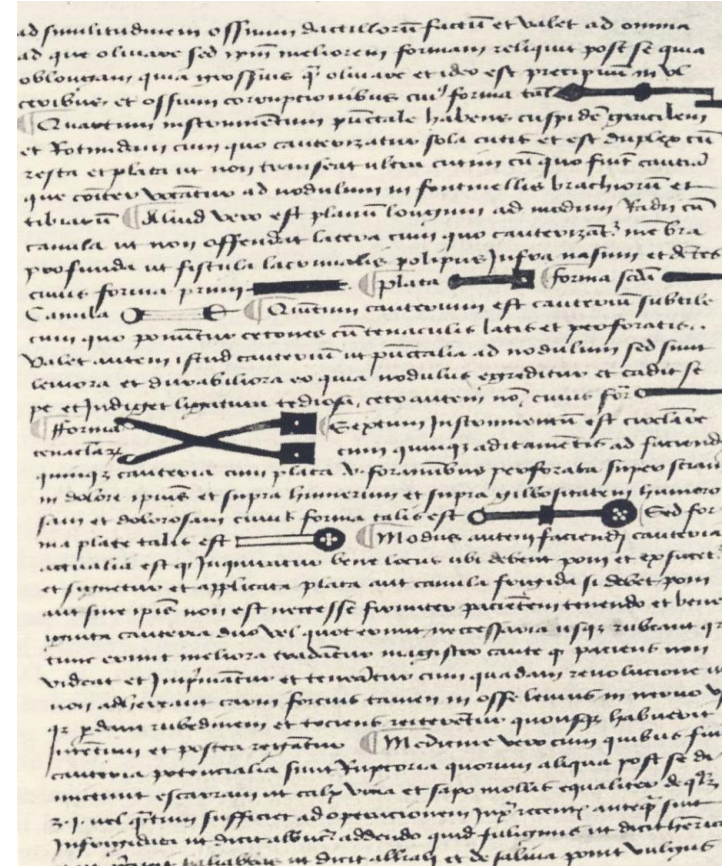 ad similitudinem ossium dactillorũ factũ et valet ad omnia
ad que olivare sed ipm̃ meliorem formam reliquit post se quia
oblongam quia grossius q̃ olivare et ideo est precipuũ in vl
ceribus et ossium corruptionibus cui⁹ forma tal
¶ Quartum instrumentum pũctale habens cuspidẽ gracilem
et Rotundam cum quo cauterizatur sola cutis et est duplex cũ
testa et plata ut non transeat ultra cutim cũ quo fiũt cauteria
que cõiter vocãtur ad nodulum in fontinellis brachiorũ et
tibiarũ ¶ Aliud vero est planũ longum ad modum Radii cũ
canula ut non offendat latera cum quo cauterizãt membra
profunda ut fistula lacrimalis polipus Infra nasum et dẽtes
cuius forma primi ¶ plata ¶ forma scd̃i
Canula ¶ Quintum cauterium est cauteriũ subtile
cum quo ponũtur cetones cũ tenaculis latis et perforatis
Valet autem istud cauteriũ ut pũctalia ad nodulum sed sunt
leviora et durabiliora eo quia nodulus egreditur et cadit se
pe et Indiget ligatura tediosa, ceto autem nõ, cuius for
¶ fforma ¶ Sextum Instrumentũ est circlare
tenaclarꝝ cum quinqꝫ aditamentis ad faciend
quinqꝫ cauteria cum plata v foraminibus perforata super sciam
in dolore ipius et supra humerum et supra gibbositatem humero
sam et dolorosam cuius forma talis est ¶ Sed for
ma plate talis est ¶ Modus autem faciendi cauteria
actualia est q Inquiratur bene locus ubi debent poni et
et signetur et applicata plata aut canula frigida si debet poni
aut sine ipis non est necesse firmiter pacientem tenendo et bene
ignita cauteria duo vel quot erunt necessaria usqꝫ rubeant qꝛ
tunc erunt meliora tradantur magistro caute q paciens non
videat et Imprimãtur et teneãtur cum quadam revolucione
non adhereant carni forcius tamen in osse levius in nervo
et tociens reiterẽtur quousqꝫ habuerit
intẽtum et postea ¶ Medicine vero cum quibus fiũ
cauteria potencialia sunt Ruptoria quorum aliqua post se di
mittunt escaram ut calx viva et sapo mollis equaliter de
ʒ · i · vel q̃tum sufficiet ad operacionem recent antequã sint
Infrigidata ut dicit albuc̃ addendo quid fuliginis ut dicit
ut dicit et de saliva ponit vulgus